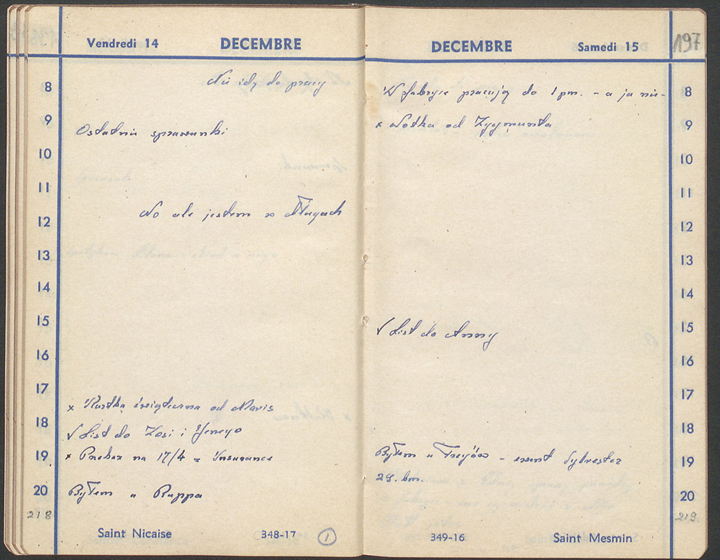 Vendredi 14 DECEMBRE
8
Nie idę do pracy
9
Ostatnie sprawunki
10
11
No ale jestem w długach
12
13
14
15
16
17
x Kartka świąteczna od Mavis
18
√ List do Zosi i Jerzego
19
x Prekaz na 17/4 z Insurance
20
Byłem u Ruppa
218
Saint Nicaise 348-17 1
DECEMBRE Samedi 15
197
8
W fabryce pracują do 1 pm. - a ja nie-
9
x Notka od Zygmunta
10
11
12
13
14
15
√ List do Anny
16
17
18
19
Byłem u - Sylvester
20
29. bm.
219
349-16 Saint Mesmin